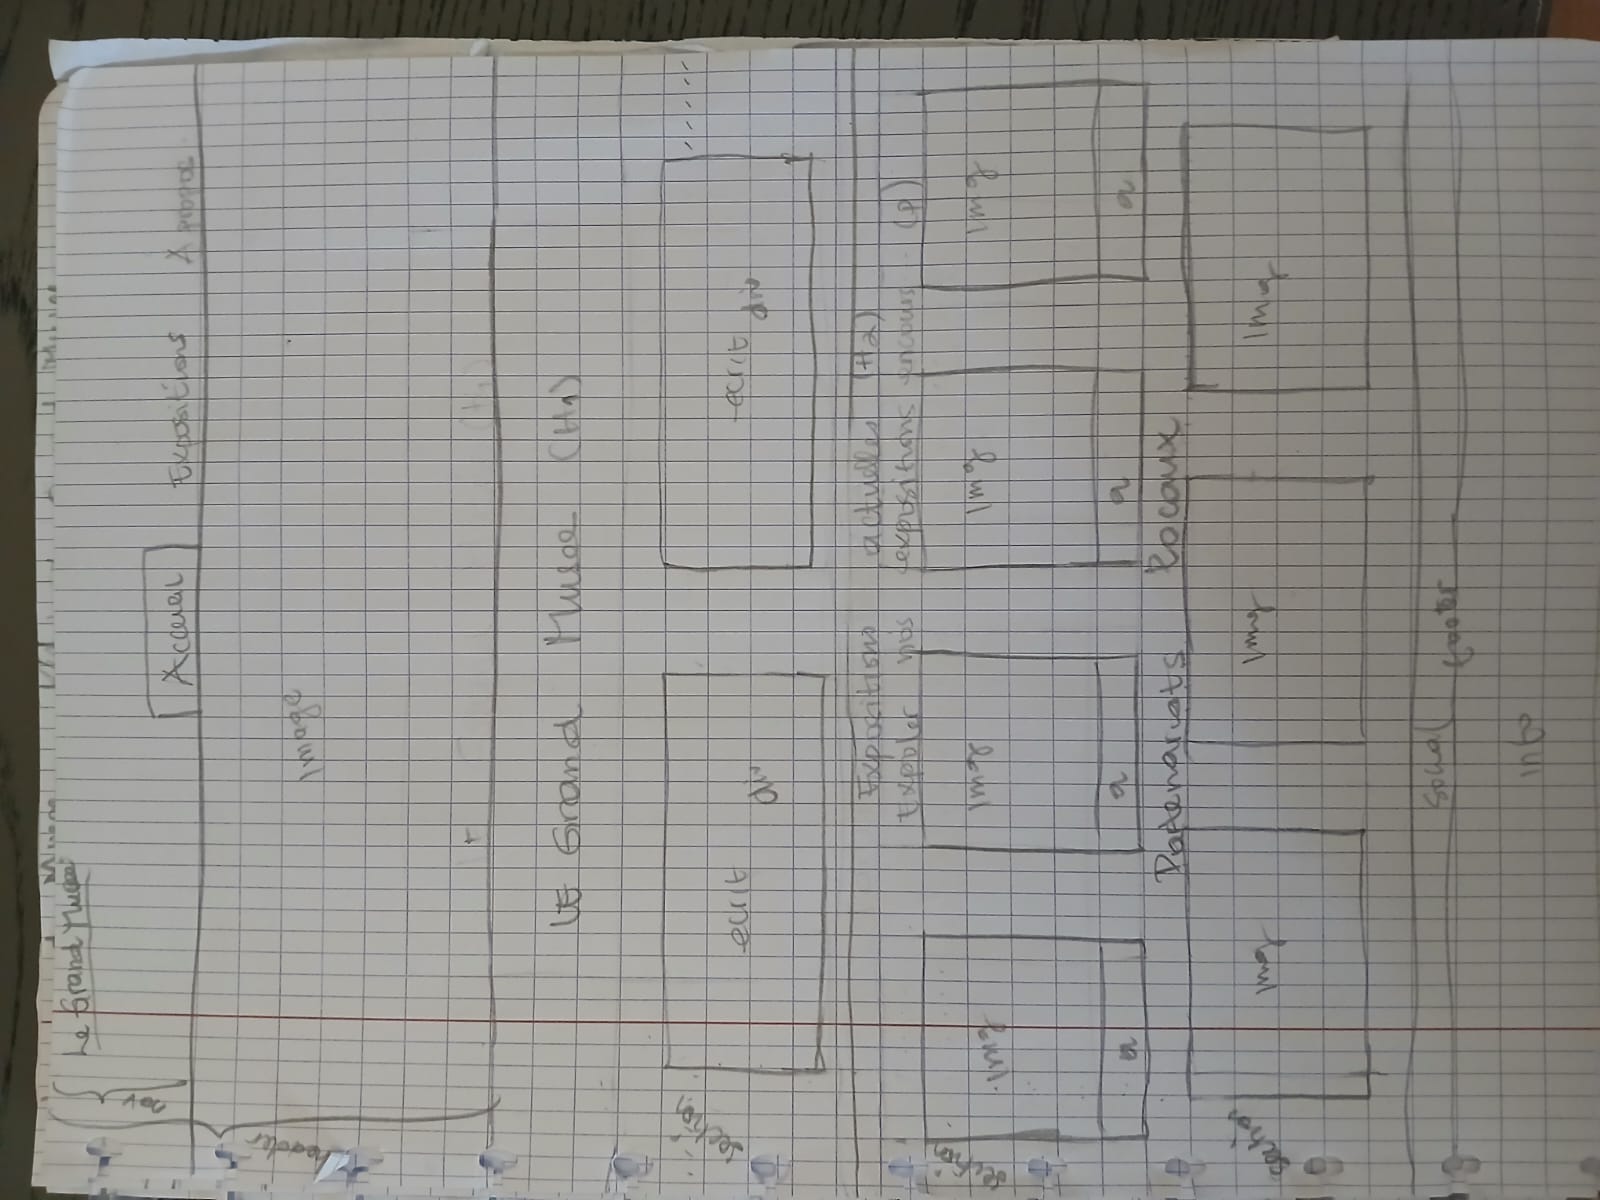 Le Grand Musée
nav
Accueil Expositions A propos
header
Image
(H1)
LE Grand Musee (H1)
section
ecrit div
ecrit div
Expositions actuelles (H2)
Explorer nos expositions encours (P)
section
Img Img Img Img
a a a a
Partenariats Rocaux
section
Img Img Img
Social footer
info